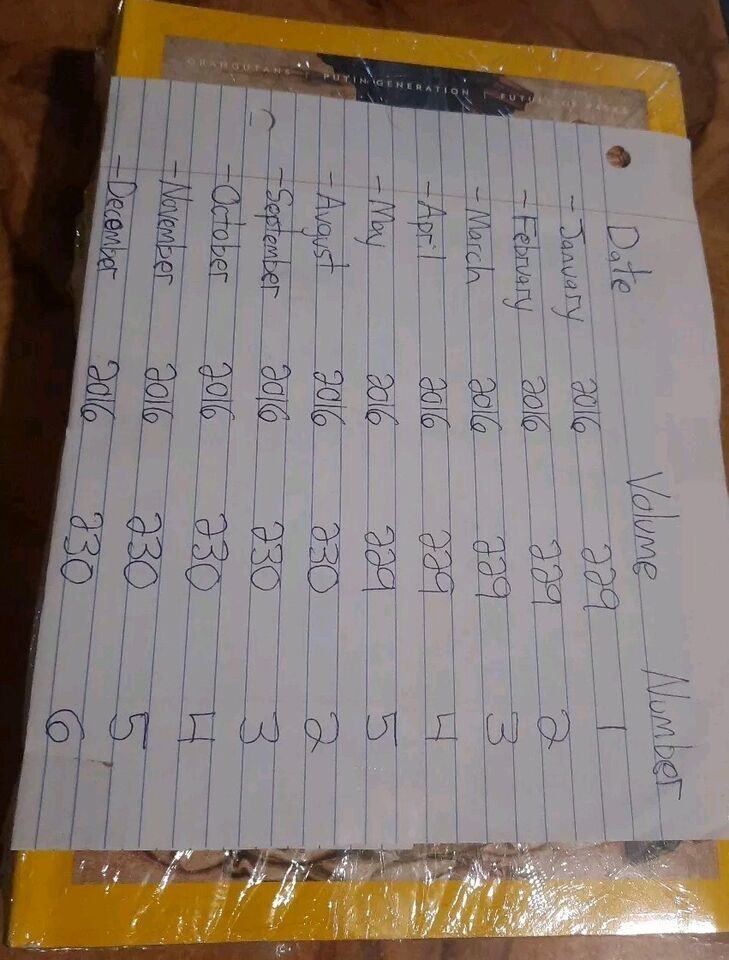 ORANGUTANS | PUTIN GENERATION | FUTURE OF PARKS
Date Volume Number
- January 2016 229 1
- February 2016 229 2
- March 2016 229 3
- April 2016 229 4
- May 2016 229 5
- August 2016 230 2
- September 2016 230 3
- October 2016 230 4
- November 2016 230 5
- December 2016 230 6